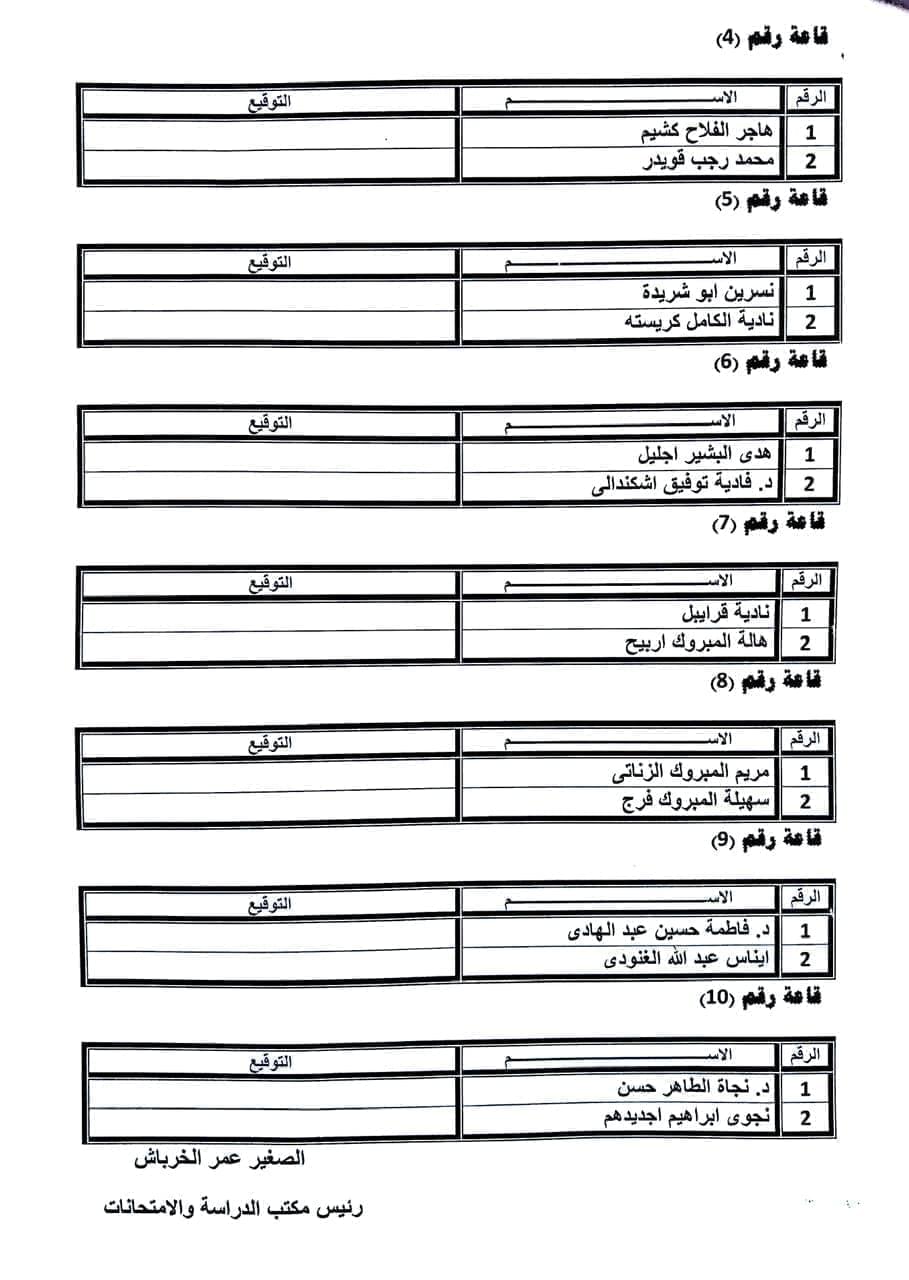 قاعة رقم (4)
الرقم الاســـــــــــــــــــــــم التوقيع
1 هاجر الفلاح كشيم
2 محمد رجب قويدر
قاعة رقم (5)
الرقم الاســـــــــــــــــــــــم التوقيع
1 نسرين ابو شريدة
2 نادية الكامل كريسته
قاعة رقم (6)
الرقم الاســـــــــــــــــــــــم التوقيع
1 هدى البشير اجليل
2 د. فادية توفيق اشكندالى
قاعة رقم (7)
الرقم الاســـــــــــــــــــــــم التوقيع
1 نادية قرايبل
2 هالة المبروك اربيح
قاعة رقم (8)
الرقم الاســـــــــــــــــــــــم التوقيع
1 مريم المبروك الزناتى
2 سهيلة المبروك فرج
قاعة رقم (9)
الرقم الاســـــــــــــــــــــــم التوقيع
1 د. فاطمة حسين عبد الهادى
2 ايناس عبد الله الغنودى
قاعة رقم (10)
الرقم الاســـــــــــــــــــــــم التوقيع
1 د. نجاة الطاهر حسن
2 نجوى ابراهيم اجديدهم
الصغير عمر الخرباش
رئيس مكتب الدراسة والامتحانات